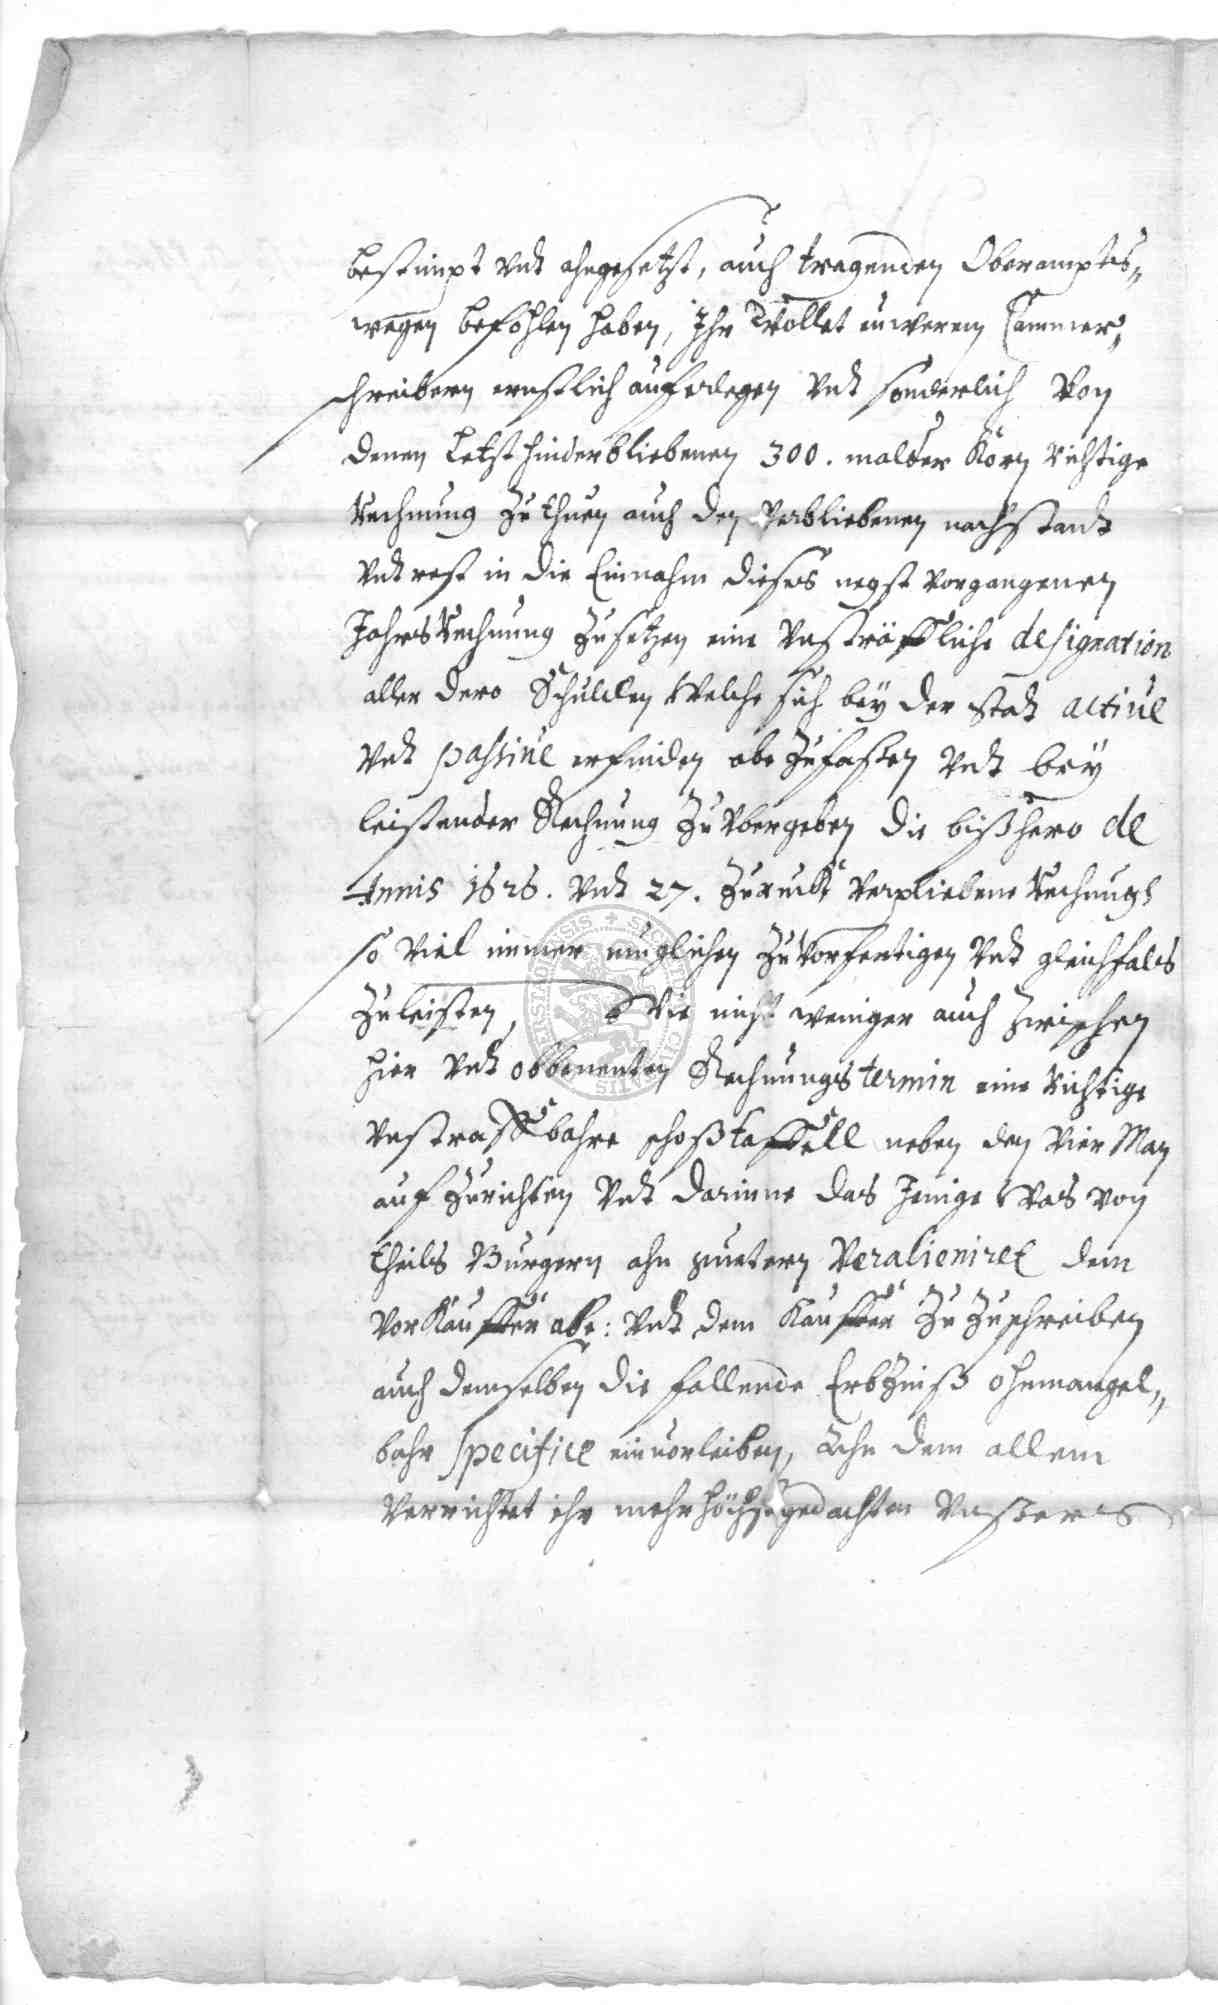 bestimpt vndt ahngesetzt, auch tragenden Oberamptes„
wegen befohlen haben, Ihr wollet eüweren Cammer„
schreibern ernstlich aufferlegen vndt sonderlich von
denen letzt hinderbliebenen 300. malder Korn richtige
Rechnung zu thuen auch den verbliebenen nachstandt
vndt rest in die Einnahm dieses negst vorgangenen
Jahrs Rechnung zusetzen eine vnsträffliche designation
aller dero Schulden welche sich bey der stadt actiuè
vndt passiuè erfinden abzufassen vndt bey
leistender Rechnung zu vbergeben die bißhero de
Annis 1626. vndt 27. zuruckt verpliebene Rechnungh
so viel immer muglichen zuvorfertigen vndt gleichfals
zu leisten, Wie nicht weniger auch zwischen
hier vndt obbenenten Rechnungs termin eine richtige
vnstraffbahre schoßtaffell neben den Vier Man
auf zurichten vndt darinne das Jenige was von
theils Burgern ahn guetern veralieniret dem
Vorkäuffer abe: vndt dem Kauffer zu zuschreiben
auch demselben die fallende Erbzinß ohnmangel„
bahr specificè einuorleiben, Ahn dem allem
verrichtet ihr mehr höchstgedachter Vnßers
SIGILLUM UNIVERSITATIS